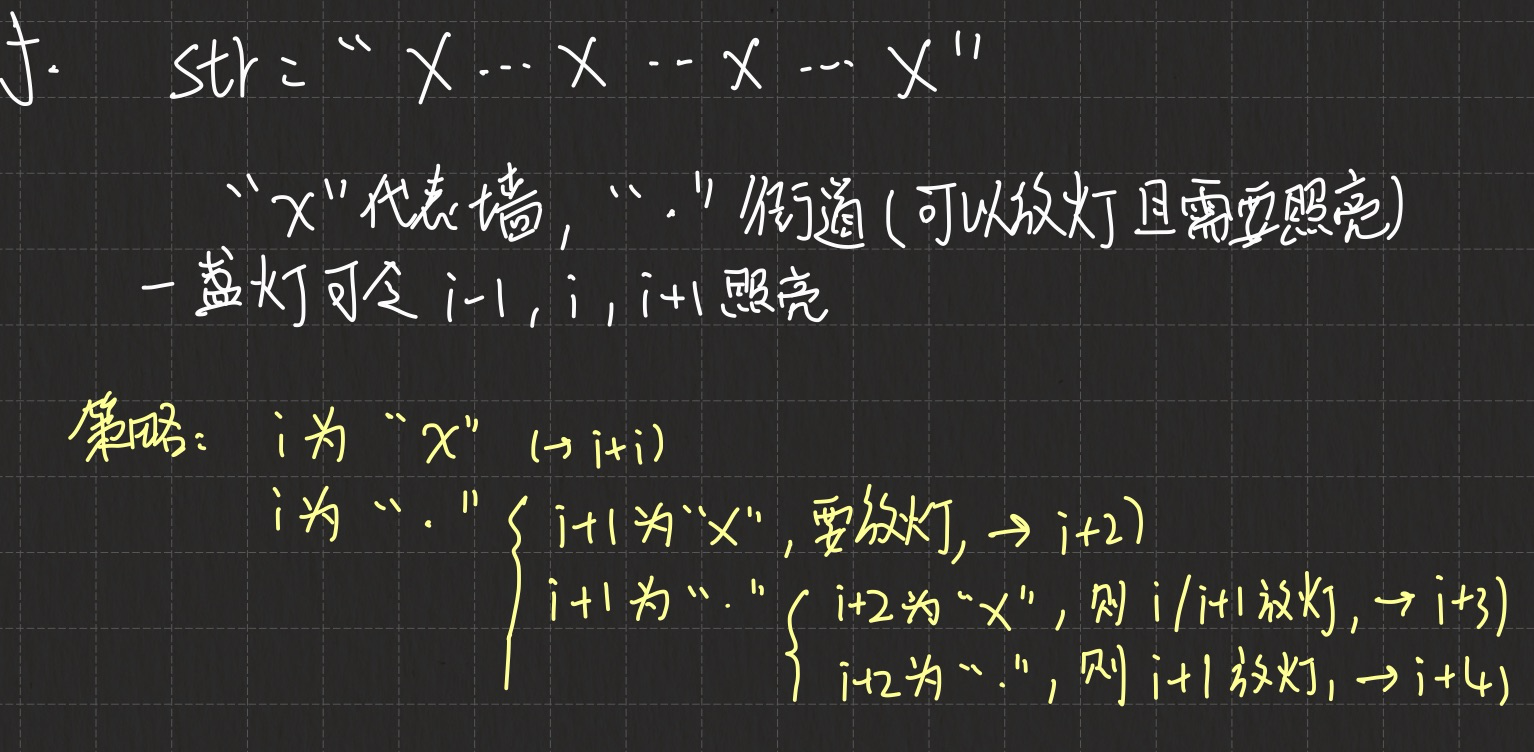 J. str = "X ... X .. X ... X"
"X"代表墙, "."街道(可以放灯且需要照亮)
一盏灯可令 i-1, i, i+1 照亮
策略: i为 "X" (→ i+i)
i为 "." { i+1为"X", 要放灯, → i+2)
i+1为"." { i+2为"X", 则 i/i+1放灯, → i+3)
i+2为".", 则 i+1放灯, → i+4)